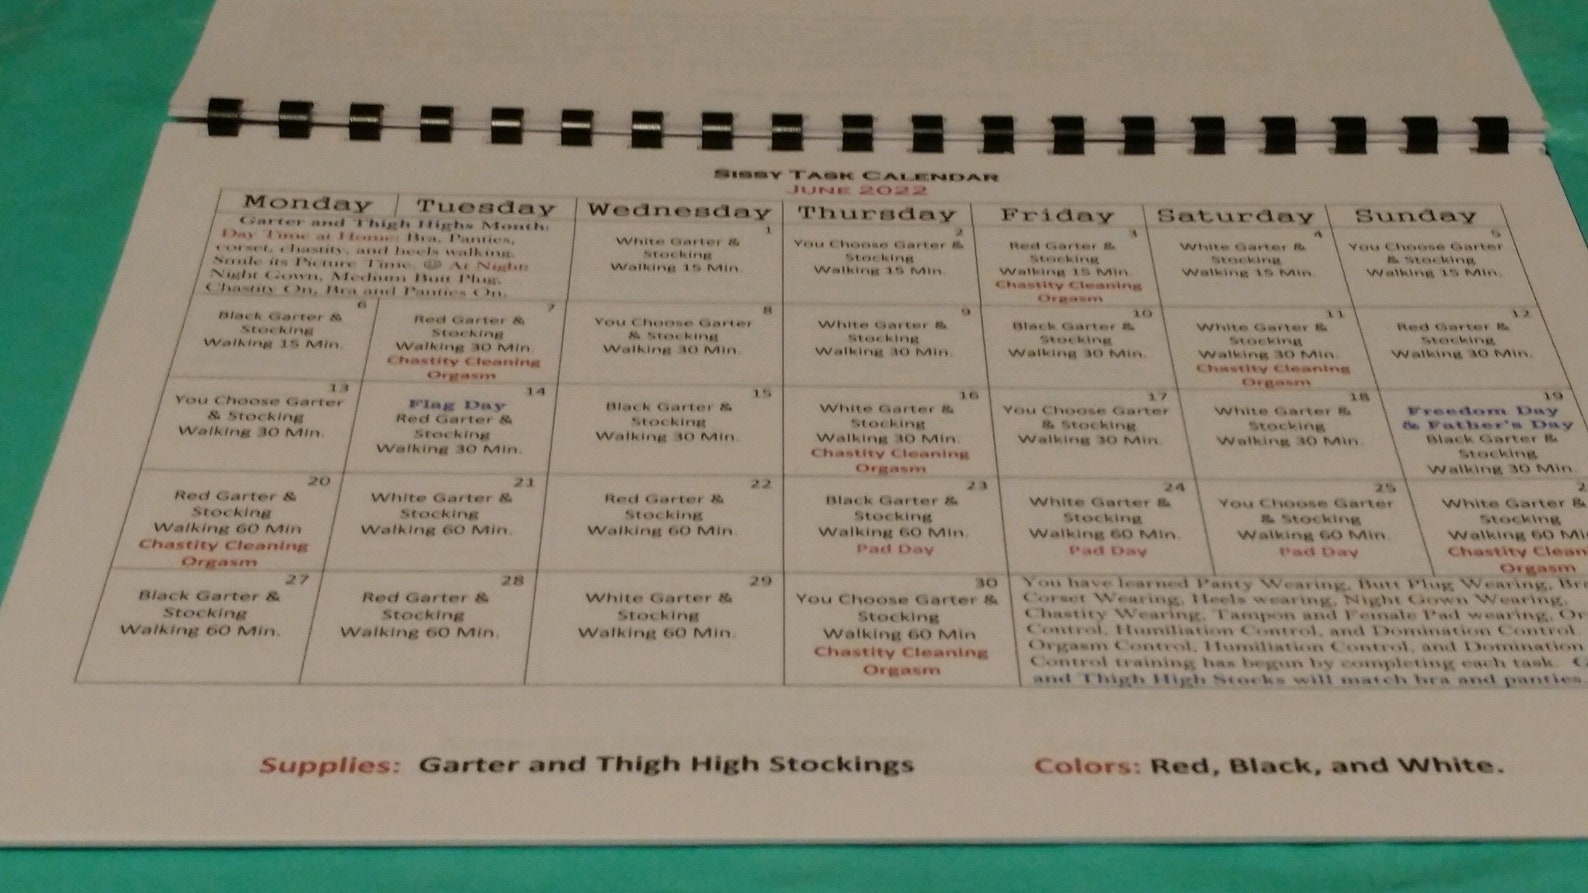 Sissy Task Calendar
June 2022
Monday Tuesday Wednesday Thursday Friday Saturday Sunday
Garter and Thigh Highs Month:
Day Time at Home: Bra, Panties,
corset, chastity, and heels walking.
Smile its Picture Time. ☺ At Night:
Night Gown, Medium Butt Plug,
Chastity On, Bra and Panties On.
1
White Garter &
Stocking
Walking 15 Min.
2
You Choose Garter &
Stocking
Walking 15 Min.
3
Red Garter &
Stocking
Walking 15 Min.
Chastity Cleaning
Orgasm
4
White Garter &
Stocking
Walking 15 Min.
5
You Choose Garter
& Stocking
Walking 15 Min.
6
Black Garter &
Stocking
Walking 15 Min.
7
Red Garter &
Stocking
Walking 30 Min.
Chastity Cleaning
Orgasm
8
You Choose Garter
& Stocking
Walking 30 Min.
9
White Garter &
Stocking
Walking 30 Min.
10
Black Garter &
Stocking
Walking 30 Min.
11
White Garter &
Stocking
Walking 30 Min.
Chastity Cleaning
Orgasm
12
Red Garter &
Stocking
Walking 30 Min.
13
You Choose Garter
& Stocking
Walking 30 Min.
14
Flag Day
Red Garter &
Stocking
Walking 30 Min.
15
Black Garter &
Stocking
Walking 30 Min.
16
White Garter &
Stocking
Walking 30 Min.
Chastity Cleaning
Orgasm
17
You Choose Garter
& Stocking
Walking 30 Min.
18
White Garter &
Stocking
Walking 30 Min.
19
Freedom Day
& Father's Day
Black Garter &
Stocking
Walking 30 Min.
20
Red Garter &
Stocking
Walking 60 Min
Chastity Cleaning
Orgasm
21
White Garter &
Stocking
Walking 60 Min.
22
Red Garter &
Stocking
Walking 60 Min.
23
Black Garter &
Stocking
Walking 60 Min.
Pad Day
24
White Garter &
Stocking
Walking 60 Min.
Pad Day
25
You Choose Garter
& Stocking
Walking 60 Min.
Pad Day
White Garter &
Stocking
Walking 60
Chastity
Orgasm
27
Black Garter &
Stocking
Walking 60 Min.
28
Red Garter &
Stocking
Walking 60 Min.
29
White Garter &
Stocking
Walking 60 Min.
30
You Choose Garter &
Stocking
Walking 60 Min
Chastity Cleaning
Orgasm
You have learned Panty Wearing, Butt Plug Wearing,
Corset Wearing, Heels wearing, Night Gown Wearing,
Chastity Wearing, Tampon and Female Pad wearing,
Control, Humiliation Control, and Domination Control.
Orgasm Control, Humiliation Control, and Domination
Control training has begun by completing each task.
and Thigh High Stocks will match bra and panties.
Supplies: Garter and Thigh High Stockings
Colors: Red, Black, and White.